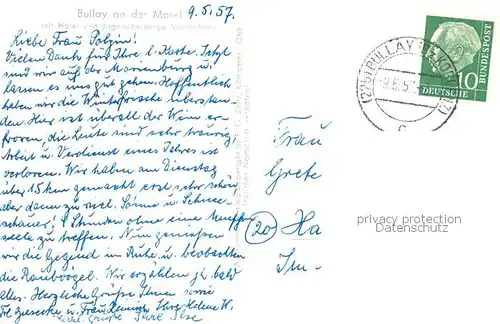 Bullay an der Mosel
mit Hotel und Jugendherberge Marienburg
9.5.57.
Liebe Frau Polzin!
Vielen Dank für Ihre l. Karte. Jetzt
sind wir auf der Marienburg u.
lassen es uns gut gehen. Hoffentlich
haben wir die überstan
den. Hier ist überall der Wein er-
froren, die Leute sind sehr traurig,
Arbeit u. Verdienst eines Jahres ist
verloren. Wir haben am Dienstag
über 15 km gemacht erst sehr schön,
aber dann zu viel Sonne u. Schnee-
schauer, Stunden ohne eine Menschen
seele zu treffen. Nun genießen
wir die Gegend in Ruhe u. beobachten
die Raubvögel. Wir erzählen bald
alles. Herzliche Grüße Ihnen sowie
Frl. u. Frau Ihre Helene W.
Grüße Ihre Ilse
(22b) BULLAY
-9.5.57
c
10
DEUTSCHE
BUNDESPOST
Frau
Grete
(20) Ha
Im
privacy protection
Datenschutz